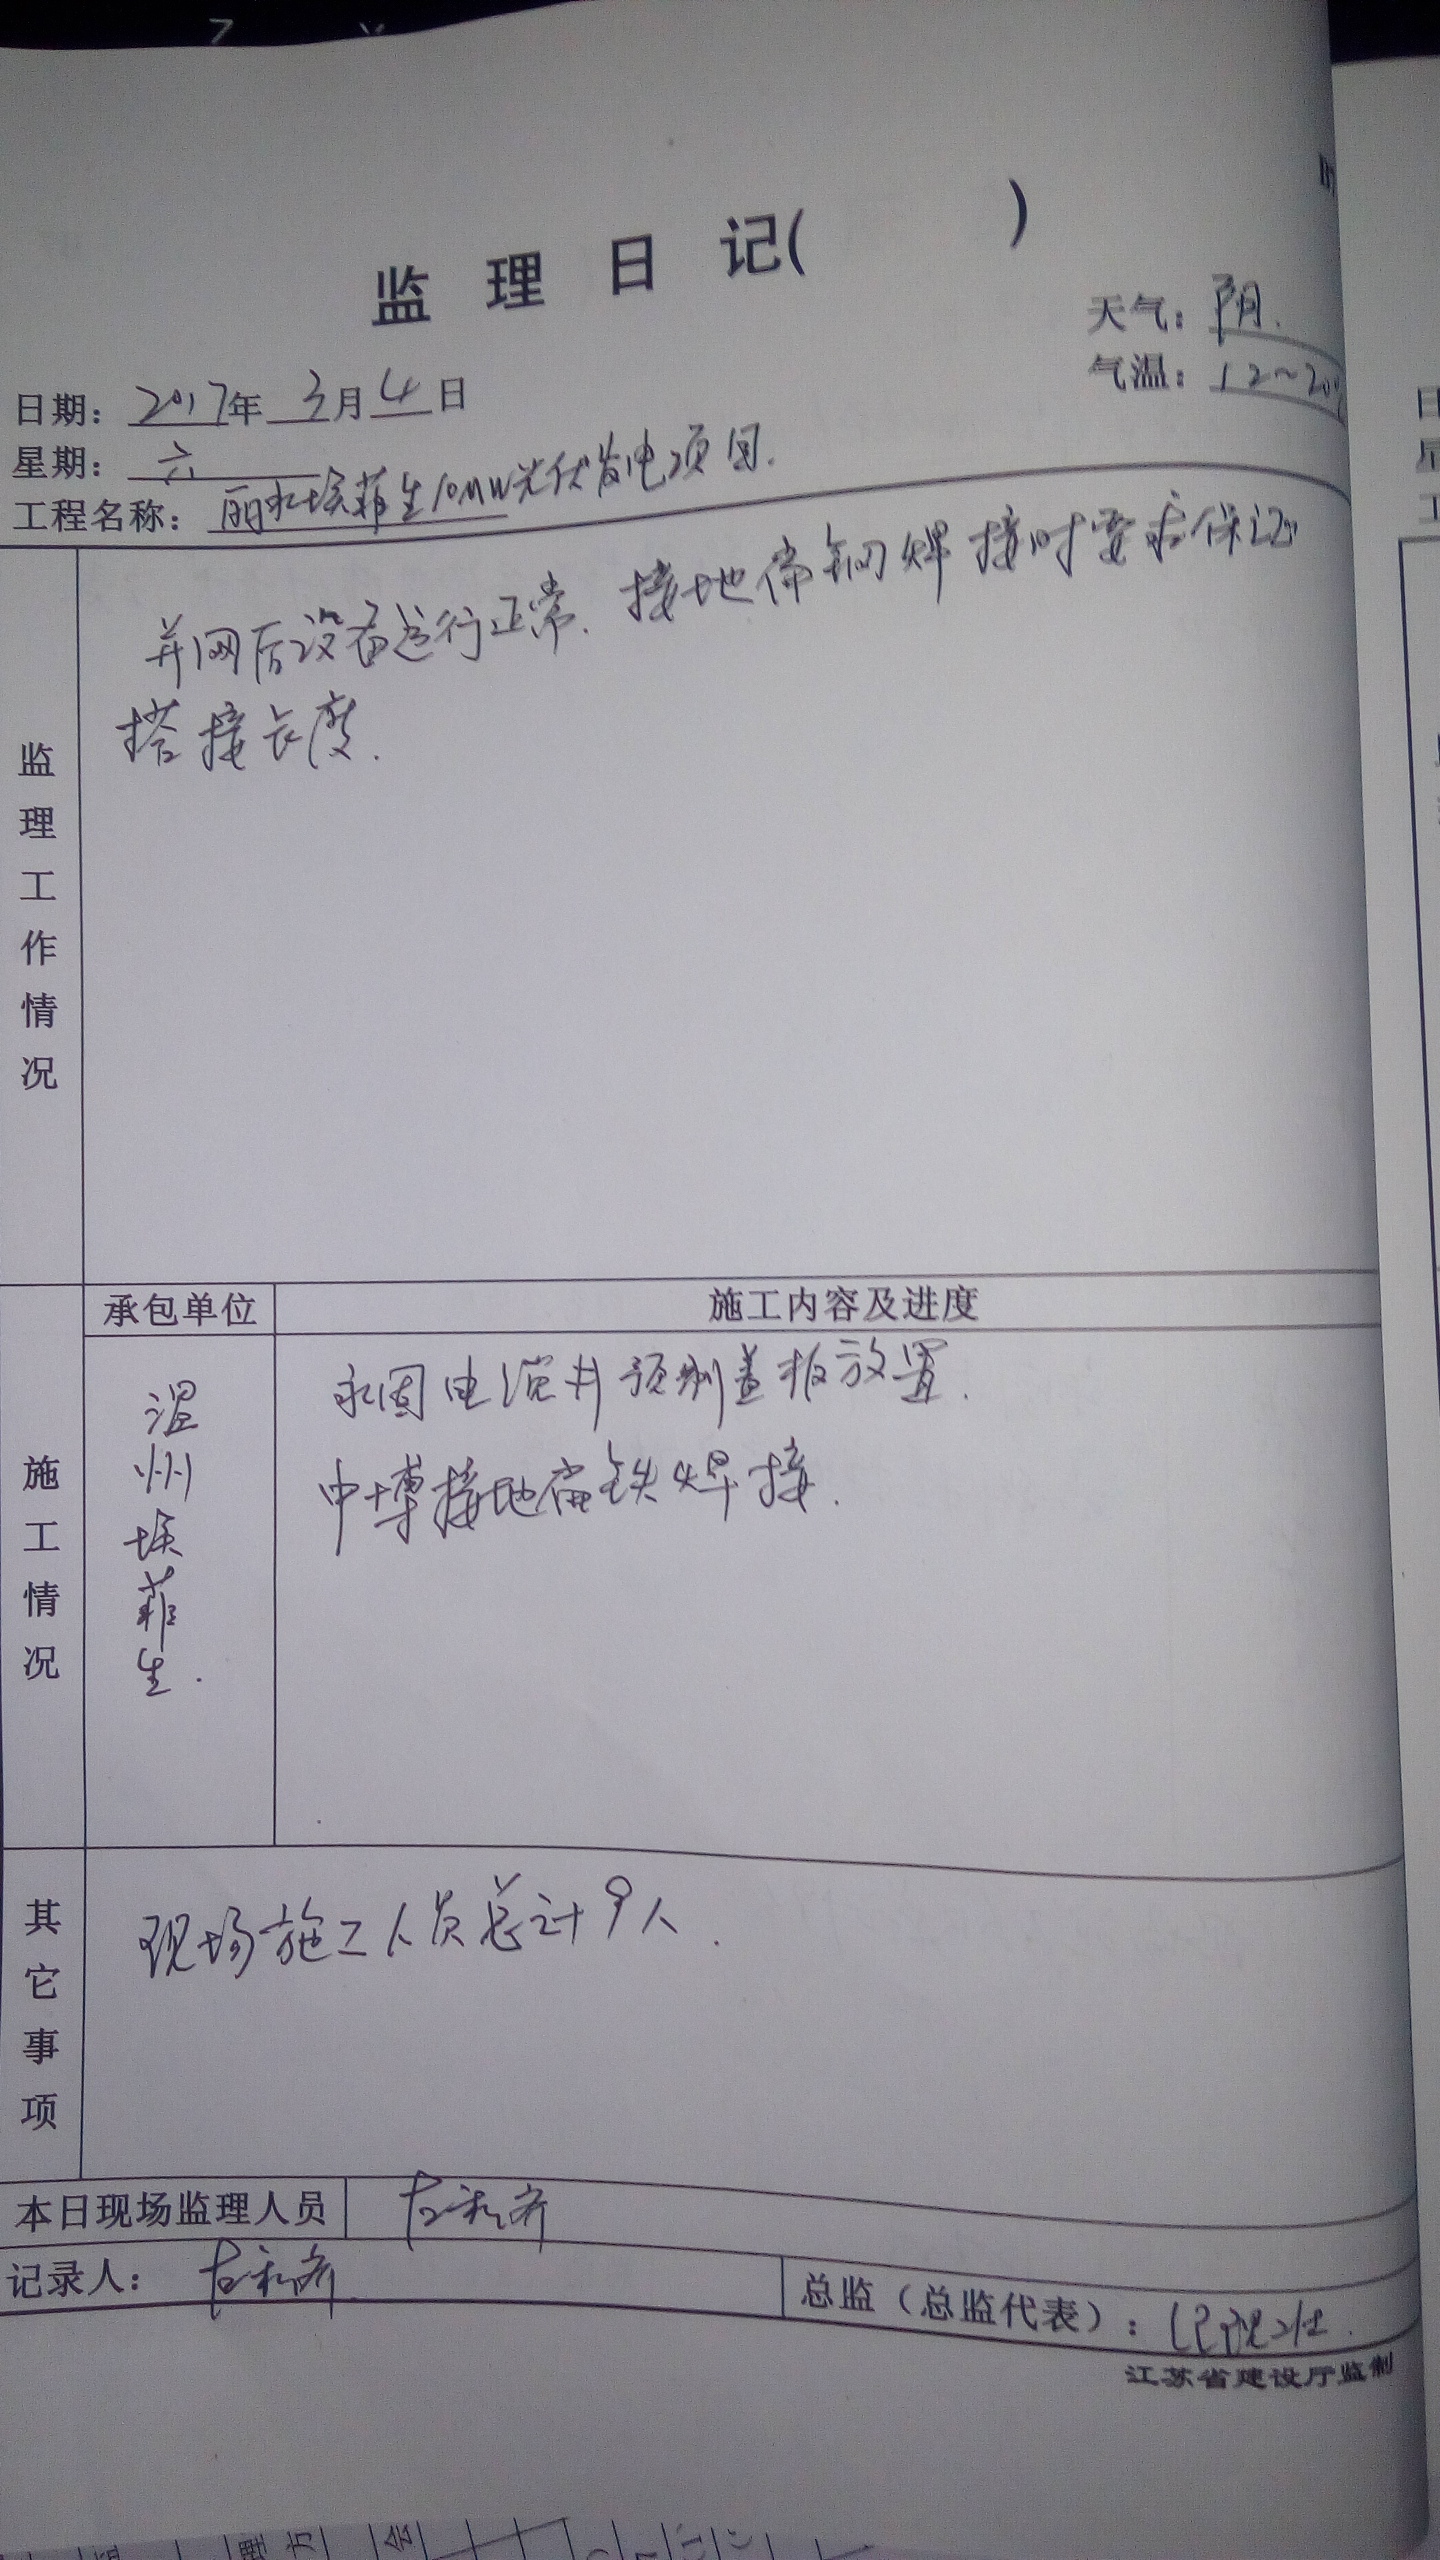 监 理 日 记( )
天气: 阴.
气温: 12~20℃
日期: 2017年 3月 4 日
星期: 六
工程名称: 丽水埃菲生10MW光伏发电项目.
监理工作情况
并网后设备运行正常. 接地扁钢焊接时要求保证
搭接长度.
施工情况
承包单位
施工内容及进度
温州埃菲生.
永固电缆井预制盖板放置.
中博接地扁铁焊接.
其它事项
现场施工人员总计9人.
本日现场监理人员
记录人:
总监（总监代表）:
江苏省建设厅监制